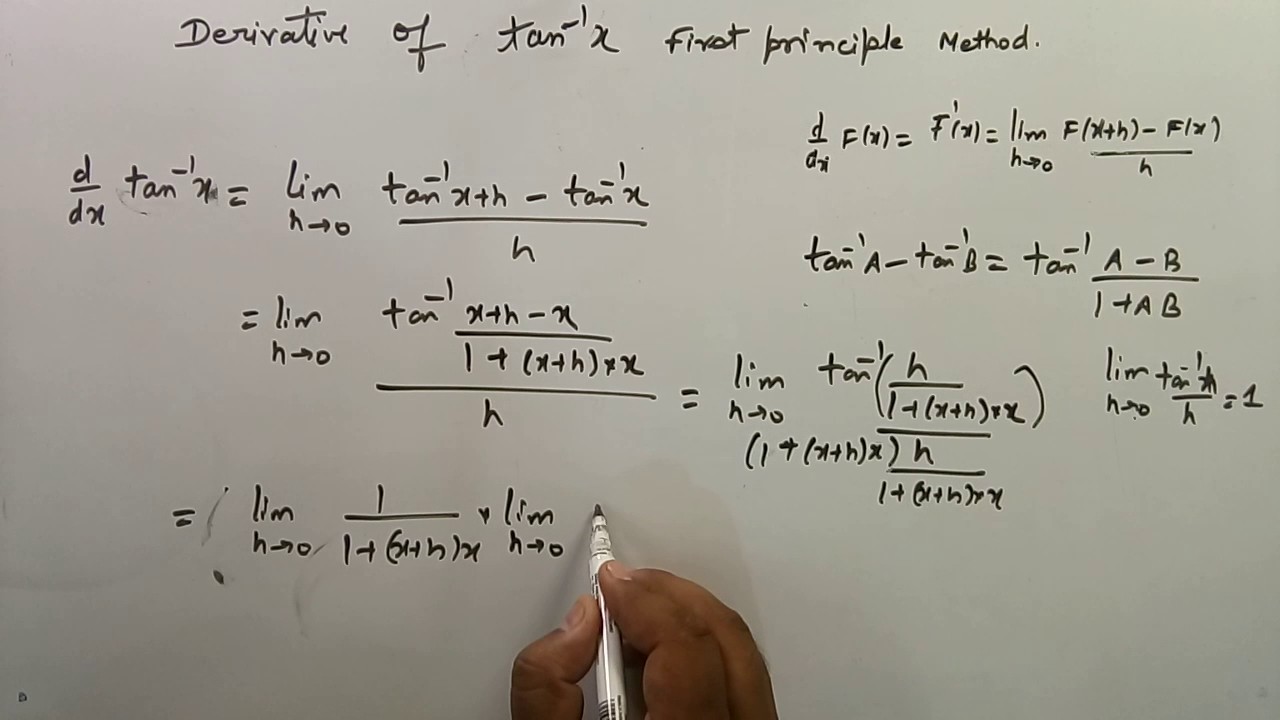 Derivative of tan⁻¹x First principle Method.
d/dx F(x) = F'(x) = lim h→0 F(x+h) − F(x) / h
d/dx tan⁻¹x = lim h→0 tan⁻¹x+h − tan⁻¹x / h
tan⁻¹A − tan⁻¹B = tan⁻¹ A − B / 1+AB
= lim h→0 tan⁻¹ x+h−x / 1+(x+h)*x / h
= lim h→0 tan⁻¹(h / 1+(x+h)*x) / (1+(x+h)x) h / 1+(x+h)*x
lim h→0 tan⁻¹h / h = 1
= lim h→0 1 / 1+(x+h)x * lim h→0